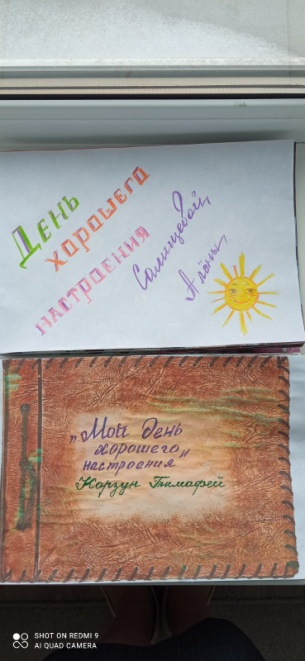 День
хорошего
настроения
Солнцевой
Алёны
"Мой день
хорошего
настроения"
Корзун Тимофей
SHOT ON REDMI 9
AI QUAD CAMERA